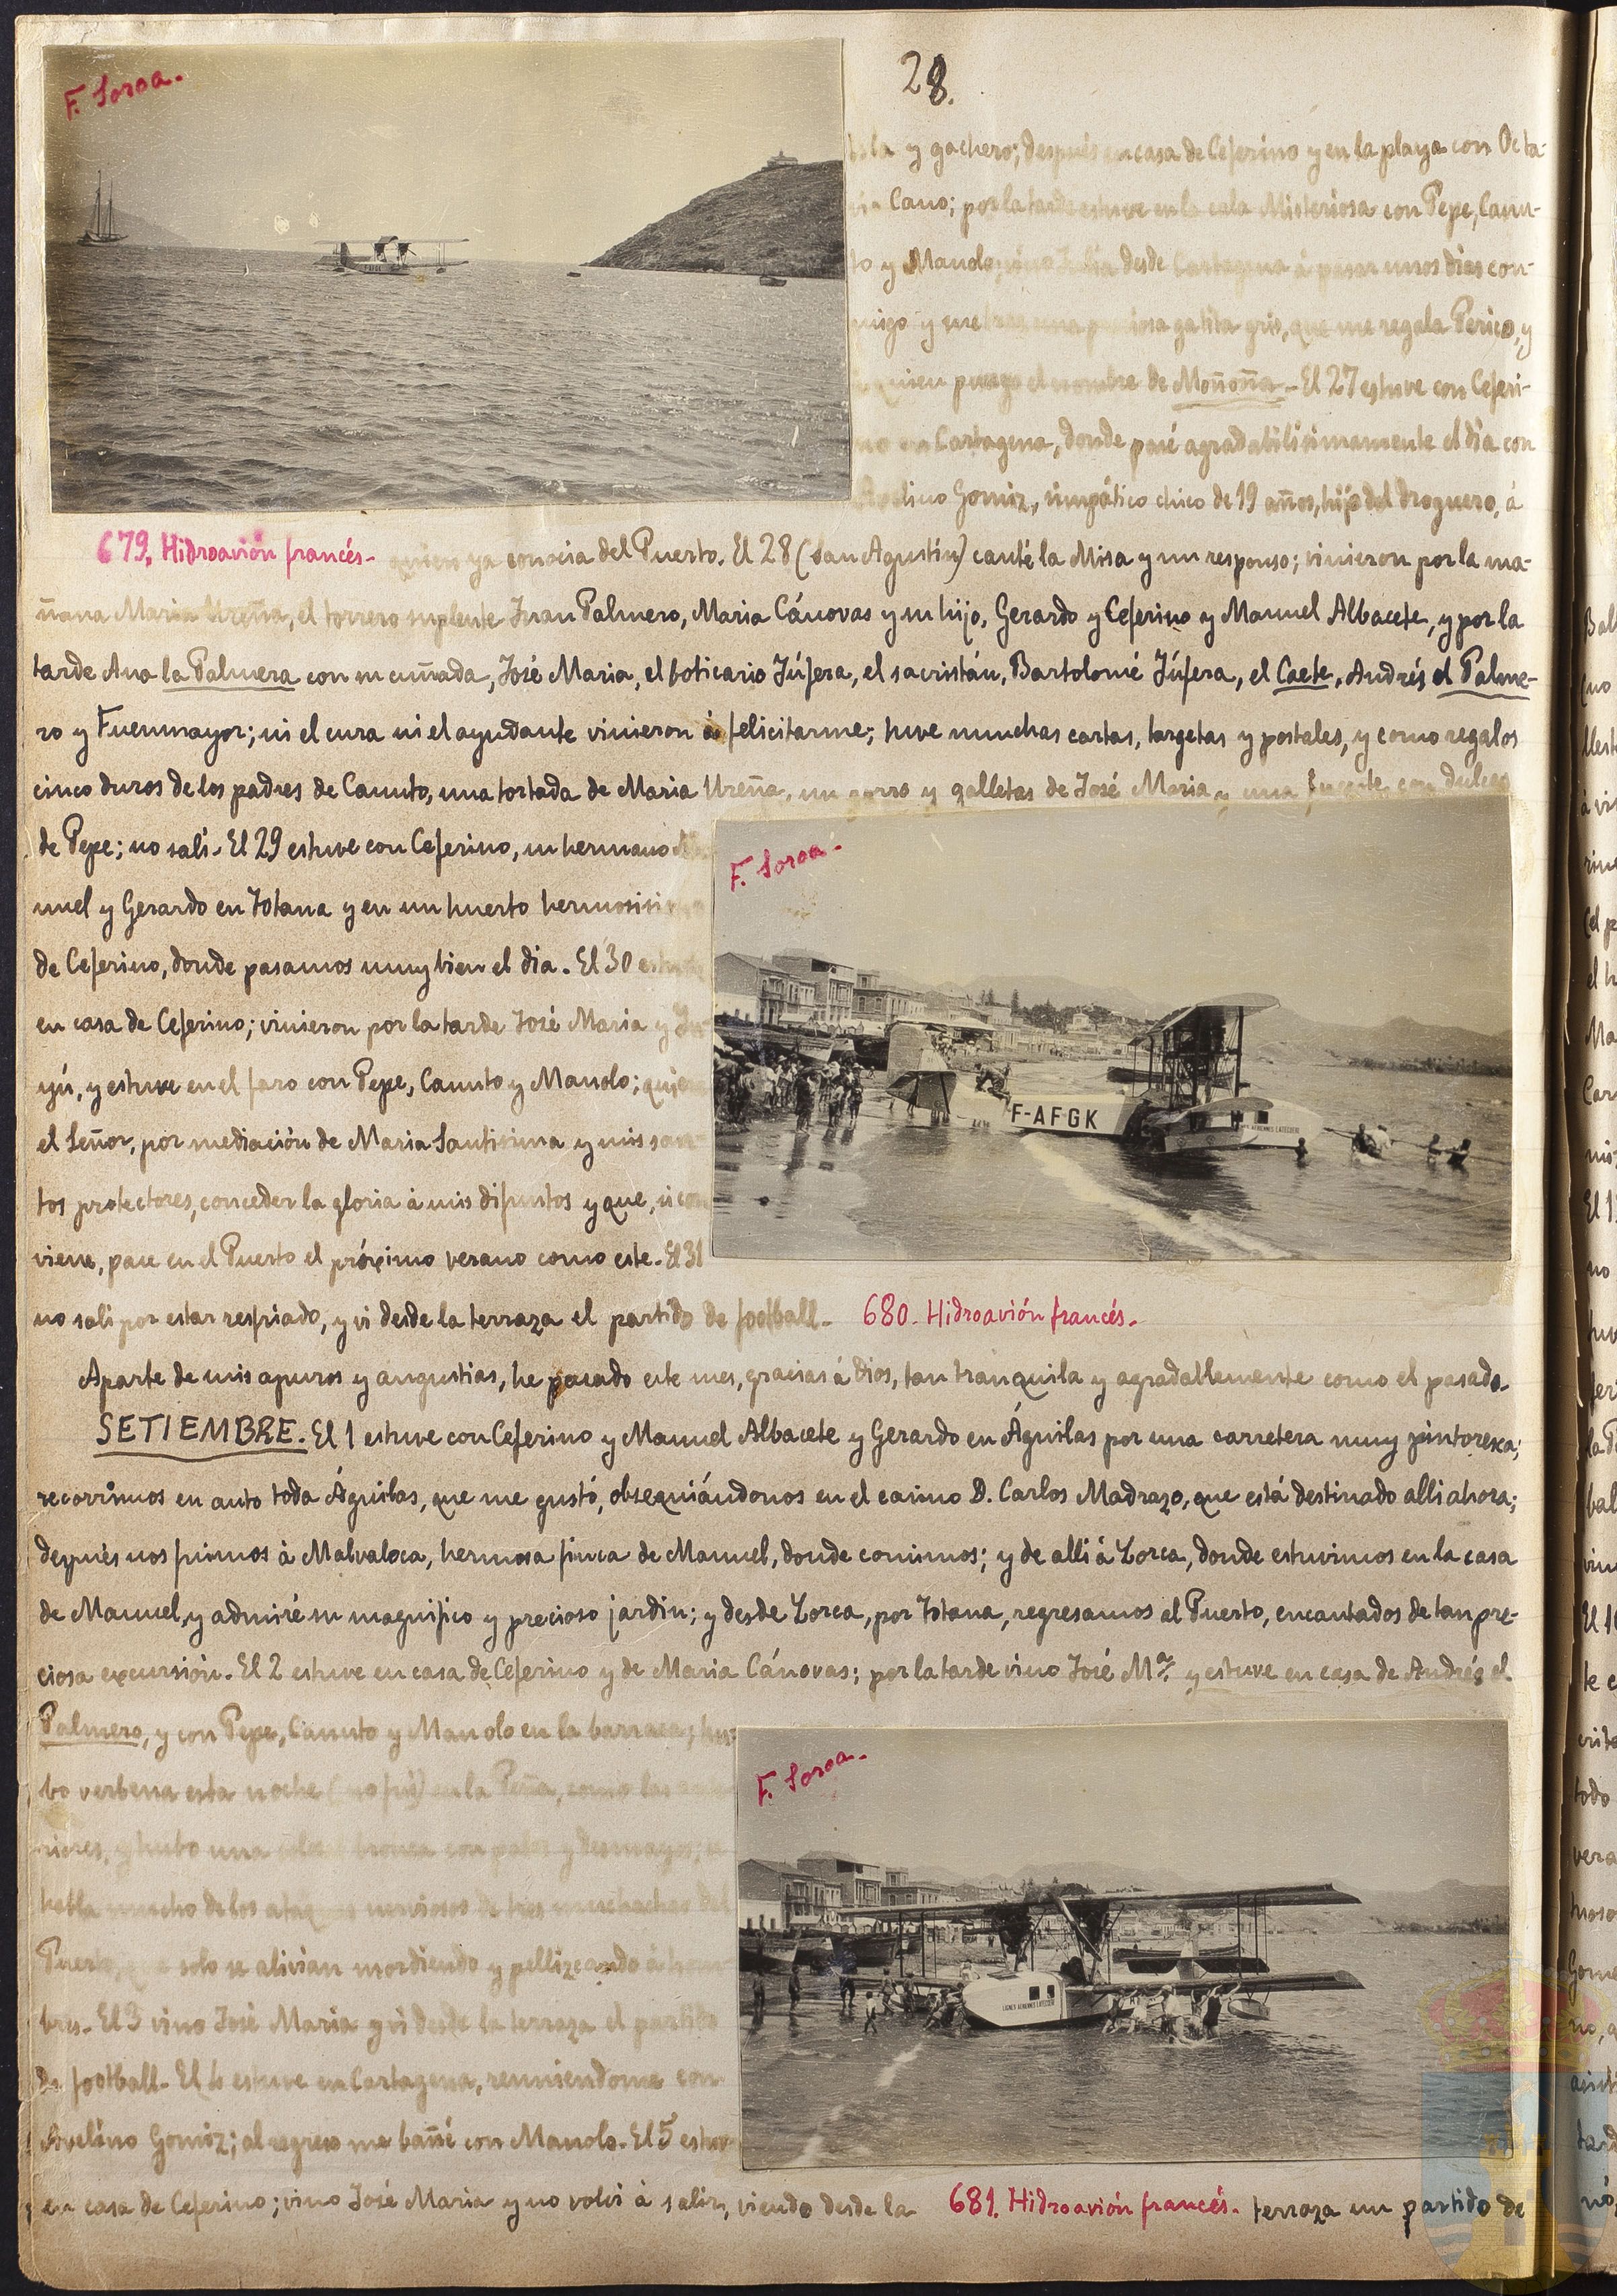 F. Soroa.
28.
y gachero; después en casa de Ceferino y en la playa con Octa-
Cano; por la tarde estuve en la cala Misteriosa con Pepe, Canu-
to y Manolo; desde Cartagena á pasar unos dias con-
migo y me trae una preciosa gatita gris, que me regala Perico, y
á quien pongo el nombre de Moñoña.- El 27 estuve con Ceferi-
no en Cartagena, donde pasé agradabilísimamente el día con
Avelino Gomiz, simpático chico de 19 años, hijo del droguero, á
679. Hidroavión francés.-
quien ya conocia del Puerto. El 28 (San Agustín) canté la Misa y un responso; vinieron por la ma-
ñana Maria Ureña, el torrero suplente Juan Palmero, Maria Cánovas y su hijo, Gerardo y Ceferino y Manuel Albacete, y por la
tarde Ana la Palmera con su cuñada, José Maria, el boticario Júfera, el sacristán, Bartolomé Júfera, el Caete, Andrés el Palme-
ro y Fuenmayor; ni el cura ni el ayudante vinieron á felicitarme; tuve muchas cartas, targetas y postales, y como regalos
cinco duros de los padres de Canuto, una tortada de Maria Ureña, un gorro y galletas de José Maria y una fuente con dulces
de Pepe; no salí.- El 29 estuve con Ceferino, su hermano Ma-
nuel y Gerardo en Totana y en un huerto hermosisimo
de Ceferino, donde pasamos muy bien el dia.- El 30 estuve
en casa de Ceferino; vinieron por la tarde José Maria y
yú, y estuve en el faro con Pepe, Canuto y Manolo; quiera
el Señor, por mediación de Maria Santisima y mis san-
tos protectores, conceder la gloria á mis difuntos y que, si con-
viene, pase en el Puerto el próximo verano como este.- El 31
no sali por estar resfriado, y vi desde la terraza el partido de football.-
F. Soroa.-
F-AFGK
680. Hidroavión francés.-
Aparte de mis apuros y angustias, he pasado este mes, gracias á Dios, tan tranquila y agradablemente como el pasado.
SETIEMBRE. El 1 estuve con Ceferino y Manuel Albacete y Gerardo en Águilas por una carretera muy pintoresca;
recorrimos en auto toda Águilas, que me gustó, obsequiándonos en el casino D. Carlos Madrazo, que está destinado alli ahora;
después nos fuimos á Malvaloca, hermosa finca de Manuel, donde comimos; y de alli á Lorca, donde estuvimos en la casa
de Manuel, y admiré su magnifico y precioso jardin; y desde Lorca, por Totana, regresamos al Puerto, encantados de tan pre-
ciosa excursión.- El 2 estuve en casa de Ceferino y de Maria Cánovas; por la tarde vino José Mª. y estuve en casa de Andrés el
Palmero, y con Pepe, Canuto y Manolo en la barraca; hu-
bo verbena esta noche (no fuí) en la Peña, como las ante-
riores, y hubo una bronca con palos y desmayos; se
habla mucho de los ataques nerviosos de tres muchachas del
Puerto, que solo se alivian mordiendo y pellizcando á hom-
bres.- El 3 vino José Maria y vi desde la terraza el partido
de football.- El 4 estuve en Cartagena, reuniendome con
Avelino Gomiz; al regreso me bañé con Manolo.- El 5 estuve
en casa de Ceferino; vino José Maria y no volví á salir, viendo desde la
F. Soroa.-
LIGNES AERIENNES LATECOERE
681. Hidroavión francés.-
terraza un partido de